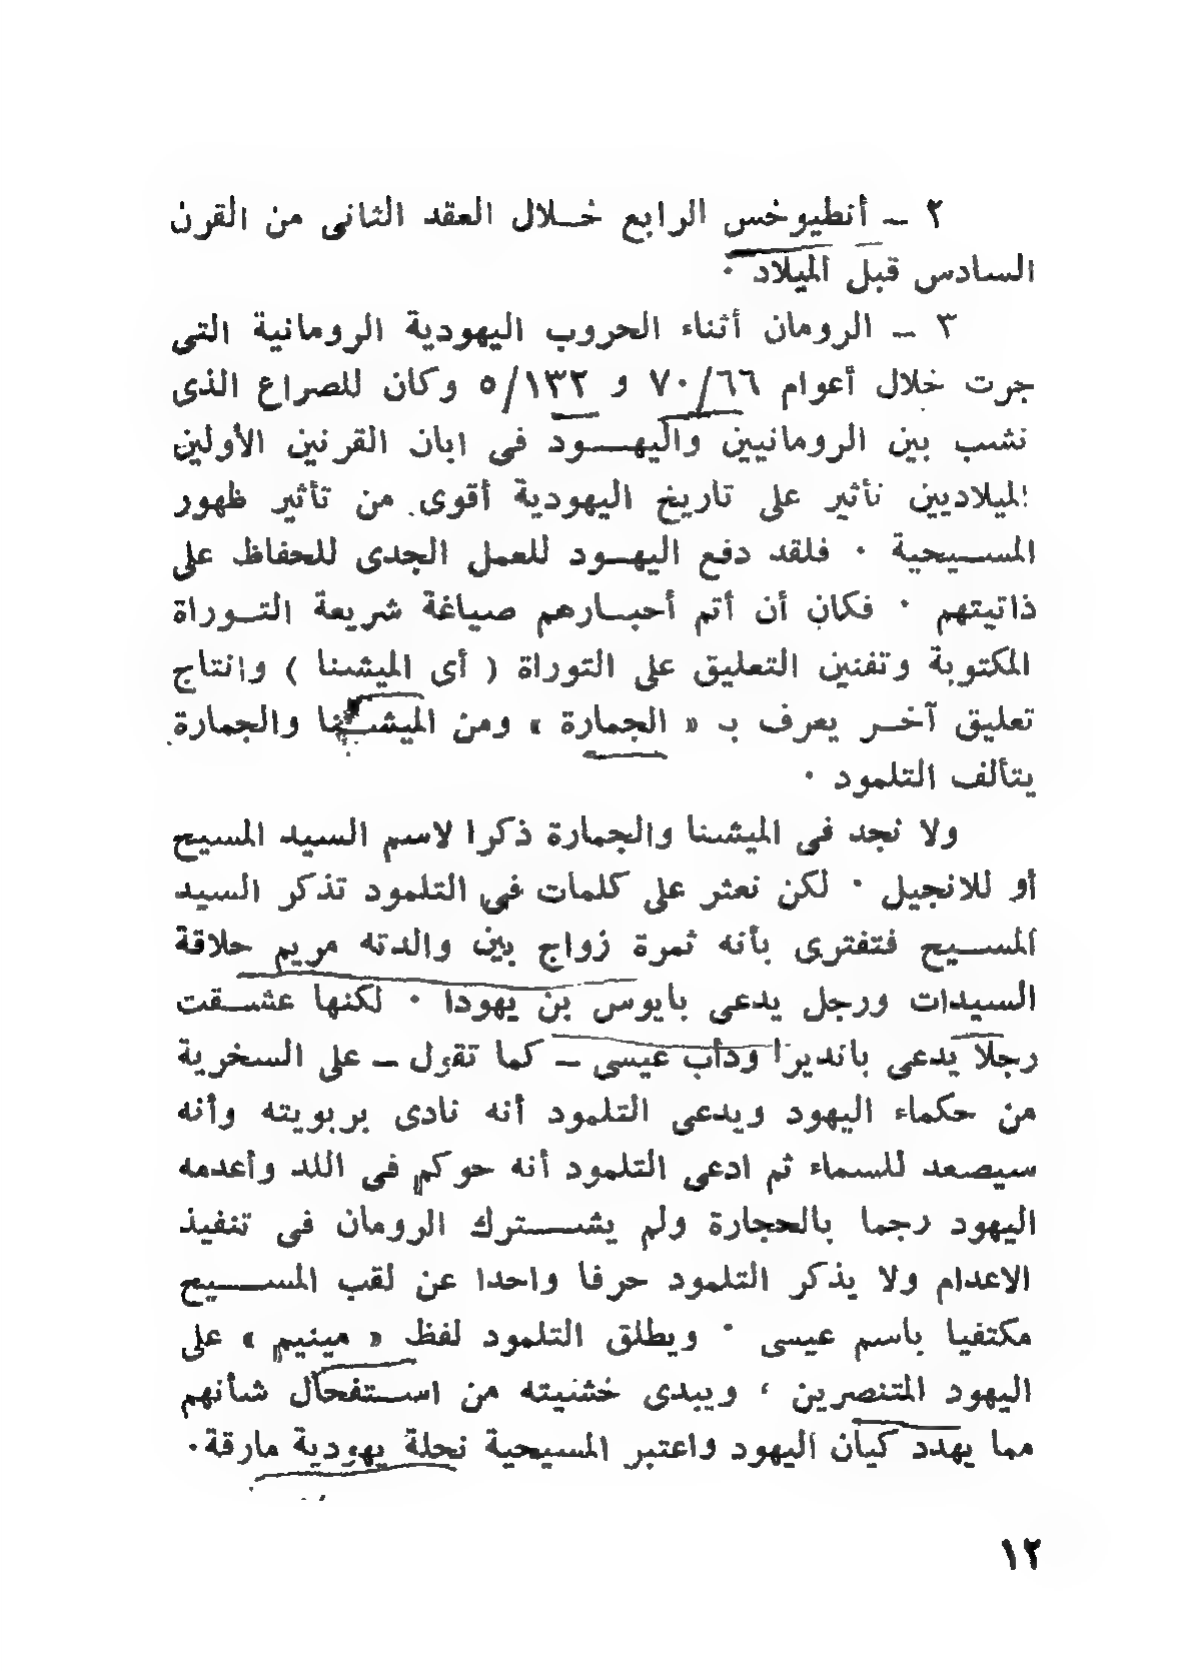 ٢ ــ أنطيوخس الرابع خــلال العقد الثانى من القرن
السادس قبل الميلاد ·
٣ ــ الرومان أثناء الحروب اليهودية الرومانية التى
جرت خلال أعوام ٧٠/٦٦ و ٥/١٣٢ وكان للصراع الذى
نشب بين الرومانيين واليهــود فى ابان القرنين الأولين
الميلاديين تأثير على تاريخ اليهودية أقوى من تأثير ظهور
المســيحية · فلقد دفع اليهــود للعمل الجدى للحفاظ على
ذاتيتهم · فكان أن أتم أحبــارهم صياغة شريعة التــوراة
المكتوبة وتفنين التعليق على التوراة ( أى الميشنا ) وانتاج
تعليق آخــر يعرف بـ « الجمارة » ومن الميشــنا والجمارة
يتألف التلمود ·
ولا نجد فى الميشنا والجمارة ذكرا لاسم السيد المسيح
أو للانجيل · لكن نعثر على كلمات فى التلمود تذكر السيد
المســيح فتفترى بأنه ثمرة زواج بين والدته مريم حلاقة
السيدات ورجل يدعى بايوس بن يهودا · لكنها عشــقت
رجلا يدعى بانديرا ودأب عيسى ــ كما تقول ــ على السخرية
من حكماء اليهود ويدعى التلمود أنه نادى بربوبيته وأنه
سيصعد للسماء ثم ادعى التلمود أنه حوكم فى اللد وأعدمه
اليهود رجما بالحجارة ولم يشــترك الرومان فى تنفيذ
الاعدام ولا يذكر التلمود حرفا واحدا عن لقب المســيح
مكتفيا باسم عيسى · ويطلق التلمود لفظ « مينيم » على
اليهود المتنصرين ، ويبدى خشنيته من اســتفحال شأنهم
مما يهدد كيان اليهود واعتبر المسيحية نحلة يهودية مارقة·
١٢